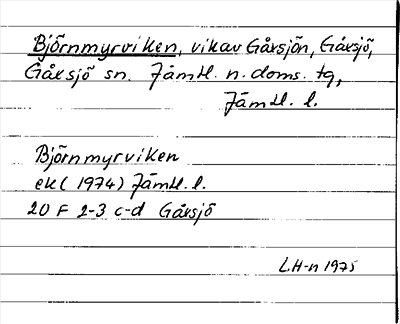 Björnmyrviken, vik av Gåxsjön, Gåxsjö,
Gåxsjö sn. Jämtl. n. doms. tg,
Jämtl. l.
Björnmyrviken
ek (1974) Jämtl. l.
20 F 2-3 c-d Gåxsjö
LH-n 1975